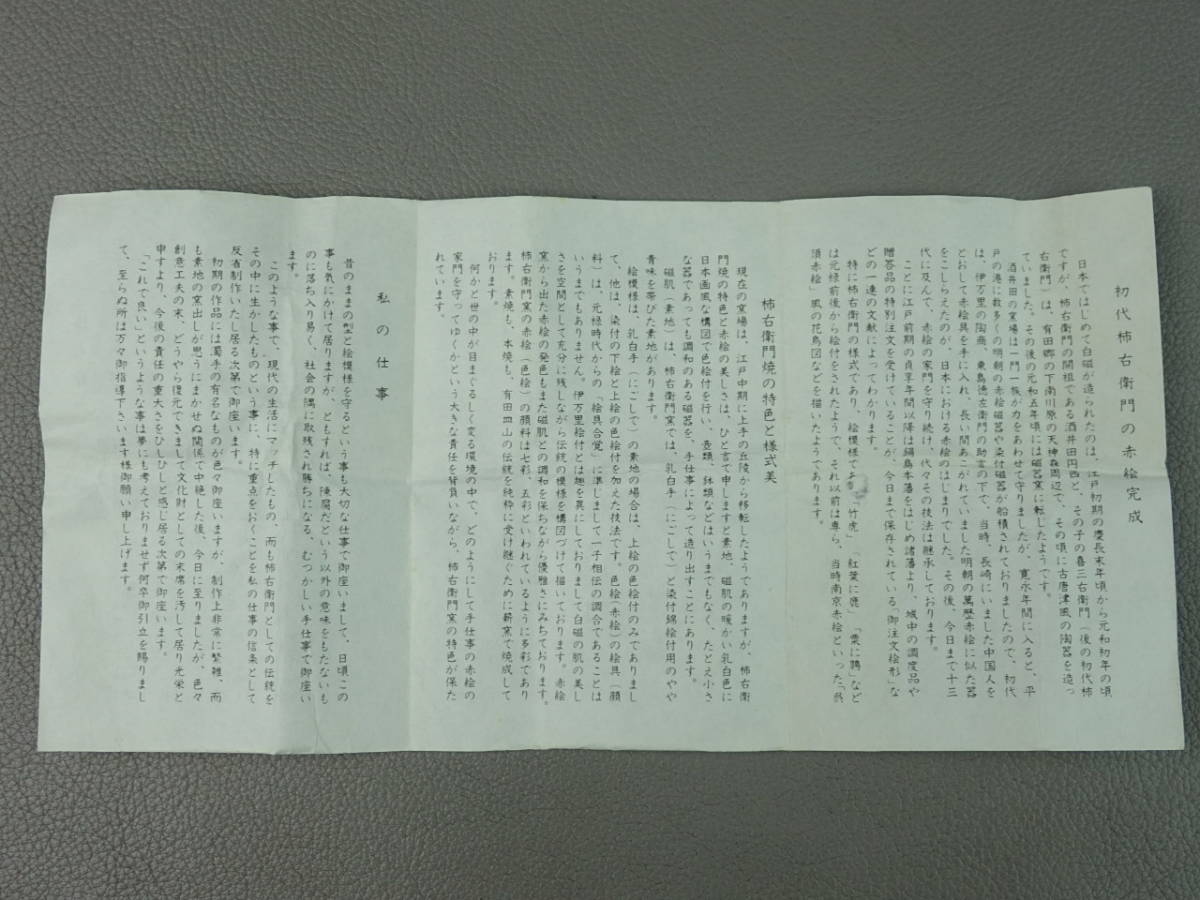 初代柿右衛門の赤絵完成
日本ではじめて白磁が造られたのは、江戸初期の慶長末年頃から元和初年の頃
ですが、柿右衛門の開祖である酒井田円西と、その子の喜三右衛門（後の初代柿
右衛門）は、有田郷の下南川原の天神森周辺で、その頃に古唐津風の陶器を造っ
ていました。その後の元和五年頃には磁器窯に転じたようです。
酒井田の窯場は一門一族が力をあわせて守りましたが、寛永年間に入ると、平
戸の港に数多くの明朝の赤絵磁器や染付磁器が船積されておりましたので、初代
は、伊万里の陶商、東島徳左衛門の助言の下で、当時、長崎にいました中国人を
とおして赤絵具を手に入れ、長い間あこがれていました明朝の萬歴赤絵に似た器
をこしらえたのが、日本における赤絵のはじまりでした。その後、今日まで十三
代に及んで、赤絵の家門を守り続け、代々その技法は継承しております。
ことに江戸前期の貞享年間以降は鍋島本藩をはじめ諸藩より、城中の調度品や
贈答品の特別注文を受けていることが、今日まで保存されている「御注文絵形」な
どの一連の文献によってわかります。
特に柿右衛門の様式であり、絵模様で「竹虎」「紅葉に鹿」「粟に鶉」など
は元禄前後から絵付をされたようで、それ以前は専ら、当時南京赤絵といった「呉
須赤絵」風の花鳥図などを描いたようであります。
柿右衛門焼の特色と様式美
現在の窯場は、江戸中期に上手の丘陵から移転したようでありますが、柿右衛
門焼の特色と赤絵の美しさは、ひと言で申しますと素地、磁肌の暖かい乳白色に
日本画風な構図で色絵付を行い、壺類、鉢類などはいうまでもなく、たとえ小さ
な器であっても調和のある磁器を、手仕事によって造り出すことにあります。
磁肌（素地）は、柿右衛門窯では、乳白手（にごしで）と染付錦絵付用のやや
青味を帯びた素地があります。
絵模様は、乳白手（にごしで）の素地の場合は、上絵の色絵付のみでありまし
て、他は、染付の下絵と上絵の色絵付を加えた技法です。色絵（赤絵）の絵具（顔
料）は、元禄時代からの「絵具合覚」に準じまして一子相伝の調合であることは
いうまでもありません。伊万里絵付とは趣を異にしておりまして白磁の肌の美し
さを空間として充分に残しながら伝統の模様を構図づけて描いております。赤絵
窯から出た赤絵の発色もまた磁肌との調和を保ちながら優雅さにみちております。
柿右衛門窯の赤絵（色絵）の顔料は七彩、五彩といわれているように多彩であり
ます。素焼も、本焼も、有田皿山の伝統を純粋に受け継ぐために薪窯で焼成して
おります。
何かと世の中が目まぐるしく変る環境の中で、どのようにして手仕事の赤絵の
家門を守ってゆくかという大きな責任を背負いながら、柿右衛門窯の特色が保た
れています。
私の仕事
昔のままの型と絵模様を守るという事も大切な仕事で御座いまして、日頃この
事も気にかけて居りますが、ともすれば、陳腐だという以外の意味をもたないも
のに落ち入り易く、社会の隅に取残され勝ちになる、むつかしい手仕事で御座い
ます。
このような事で、現代の生活にマッチしたもの、而も柿右衛門としての伝統を
その中に生かしたものという事に、特に重点をおくことを私の仕事の信条として
反省制作いたし居る次第で御座います。
初期の作品には濁手の有名なものが色々御座いますが、制作上非常に繁雑、而
も素地の窯出しが思うにまかせぬ関係で中絶した後、今日に至りましたが、色々
創意工夫の末、どうやら復元できまして文化財としての末席を汚して居り光栄と
申すより、今後の責任の重大さをひしひしと感じ居る次第で御座います。
「これで良い」というような事は夢にも考えておりませず何卒御引立を賜りまし
て、至らぬ所は万々御指導下さいます様御願い申し上げます。